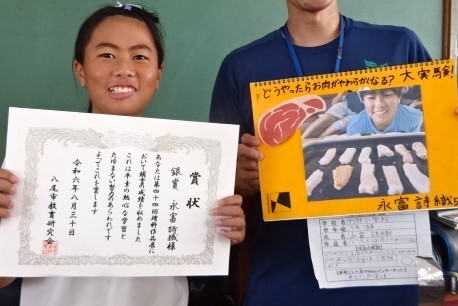 賞状
銀賞 永富詩織様
あなたは第四十四回理科作品展に
おいて頭書の成績を収めました
これは平素の熱心な学習と
たゆまない努力のあらわれです
よってこれを賞します
令和六年八月三十日
八尾市教育研究会
どうやったらお肉がやわらかくなる?大実験!
永富詩織